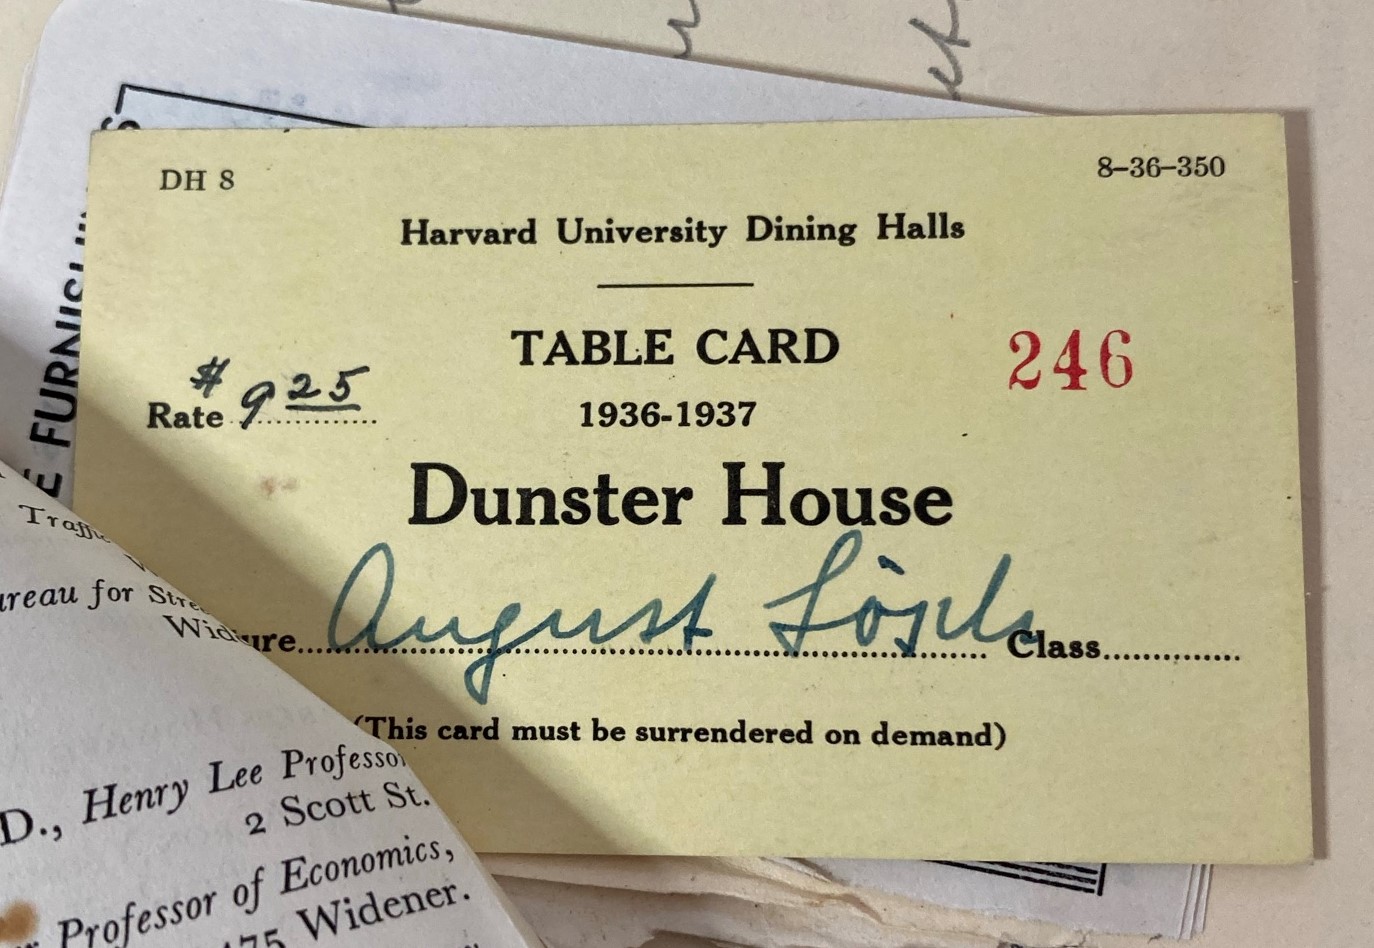 DH 8
8-36-350
Harvard University Dining Halls
TABLE CARD
246
$
Rate 9 25
1936-1937
Dunster House
ure August Lösch Class
(This card must be surrendered on demand)
E FURNISH
Traffic
ureau for Stree
Wid
D., Henry Lee Professor
2 Scott St.
Professor of Economics,
175 Widener.